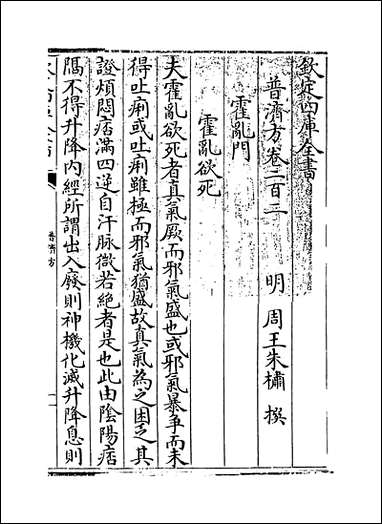 欽定四庫全書
普濟方卷二百三
明 周王朱橚 撰
霍亂門
霍亂欲死
夫霍亂欲死者真氣厥而邪氣盛也或邪氣暴爭而未
得吐痢或吐痢雖極而邪氣猶盛故真氣為之困乏其
證煩悶痞滿四逆自汗脉微若絶者是也此由陰陽痞
隔不得升降内經所謂出入廢則神機化滅升降息則
普濟方